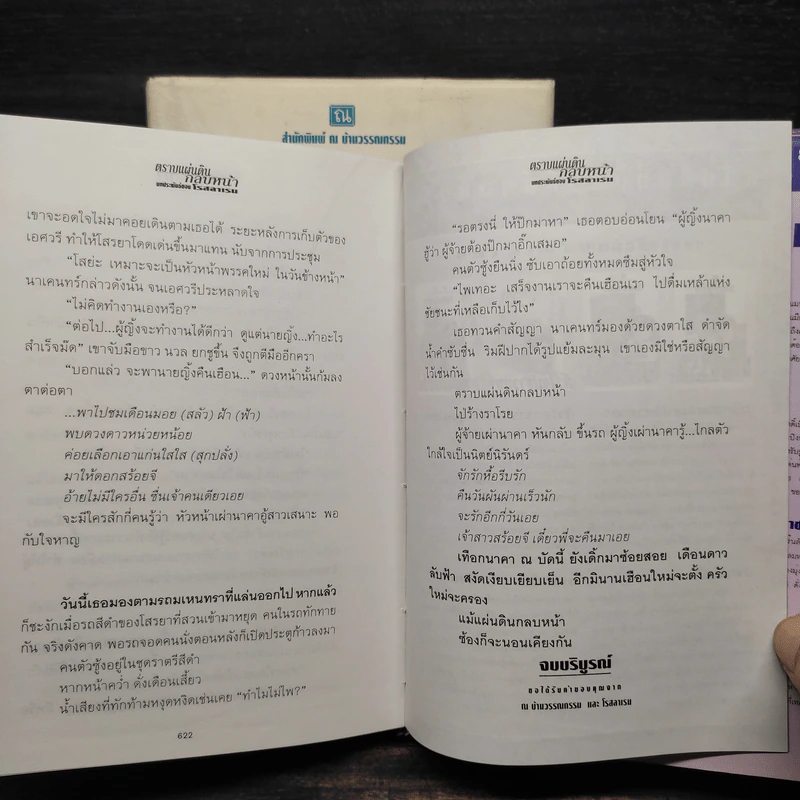 ณ
สำนักพิมพ์ ณ บ้านวรรณกรรม
ตราบแผ่นดิน
กลบหน้า
บทประพันธ์ของ โรสลาเรน
เขาจะอดใจไม่มาคอยเดินตามเธอได้ ระยะหลังการเก็บตัวของ
เอศวรี ทำให้โสรยาโดดเด่นขึ้นมาแทน นับจากการประชุม
“โสย่ะ เหมาะจะเป็นหัวหน้าพรรคใหม่ ในวันข้างหน้า”
นาเคนทร์กล่าวดังนั้น จนเอศวรีประหลาดใจ
“ไม่คิดทำงานเองหรือ?”
“ต่อไป...ผู้ญิ้งจะทำงานได้ดีกว่า ดูแต่นายญิ้ง...ทำอะไร
สำเร็จมึ๊ด” เขาจับมือขาว นวล ยกชูขึ้น จึงถูกตีมืออีกครา
“บอกแล้ว จะพานายญิ้งคืนเฮือน...” ดวงหน้านั้นก้มลง
ตาต่อตา
...พาไปชมเดือนมอย (สลัว) ฝ้า (ฟ้า)
พบดวงดาวหน่วยหน้อย
ค่อยเลือกเอาแก่นใสใส (สุกปลั่ง)
มาให้ดอกสร้อยจี
อ้ายไม่มีใครอื่น ชื่นเจ้าคนเดียวเอย
จะมีใครสักกี่คนรู้ว่า หัวหน้าเผ่านาคาอู้สาวเสนาะ พอ
กับใจหาญ
วันนี้เธอมองตามรถมเหนทราที่แล่นออกไป หากแล้ว
ก็ชะงักเมื่อรถสีดำของโสรยาที่สวนเข้ามาหยุด คนในรถทักทาย
กัน จริงดังคาด พอรถจอดคนนั่งตอนหลังก็เปิดประตูก้าวลงมา
คนตัวซูงอยู่ในชุดราตรีสีดำ
หากหน้าคว่ำ ดั่งเดือนเสี้ยว
น้ำเสียงที่ทักท้ามหงุดหงิดเช่นเคย “ทำไมไม่ไพ?”
622
ตราบแผ่นดิน
กลบหน้า
บทประพันธ์ของ โรสลาเรน
“รอตรงนี่ ให้ปึกมาหา” เธอตอบอ่อนโยน “ผู้ญิ้งนาคา
ฮู้ว่า ผู้จ้ายต้องปึกมาอี๊กเสมอ”
คนตัวซูงยืนนิ่ง ซับเอาถ้อยทั้งหมดซึมสู่หัวใจ
“ไพเทอะ เสร็จงานเราจะคืนเฮือนเรา ไปดื่มเหล้าแห่ง
ชัยชนะที่เหลือเก็บไว้ไง”
เธอทวนคำสัญญา นาเคนทร์มองด้วยดวงตาใส ดำจัด
น้ำคำซับชื่น ริมฝีปากได้รูปแย้มละมุน เขาเองมิใช่หรือสัญญา
ไว้เช่นกัน
ตราบแผ่นดินกลบหน้า
ไป่ร้างราโรย
ผู้จ้ายเผ่านาคา หันกลับ ขึ้นรถ ผู้ญิ้งเผ่านาคารู้...ไกลตัว
ใกล้ใจเป็นนิตย์นิรันดร์
จักรักหื้อรีบรัก
คืนวันผันผ่านเร็วนัก
จะรักอีกกี่วันเอย
เจ้าสาวสร้อยจี เดี๋ยวพี่จะคืนมาเอย
เทือกนาคา ณ บัดนี้ ยังเดิ้กมาซ้อยสอย เดือนดาว
ลับฟ้า สงัดเงียบเยียบเย็น อีกมินานเฮือนใหม่จะตั้ง ครัว
ใหม่จะครอง
แม้แผ่นดินกลบหน้า
ซ้องก็จะนอนเคียงกัน
จบบริบูรณ์
ขอได้รับคำขอบคุณจาก
ณ บ้านวรรณกรรม และ โรสลาเรน